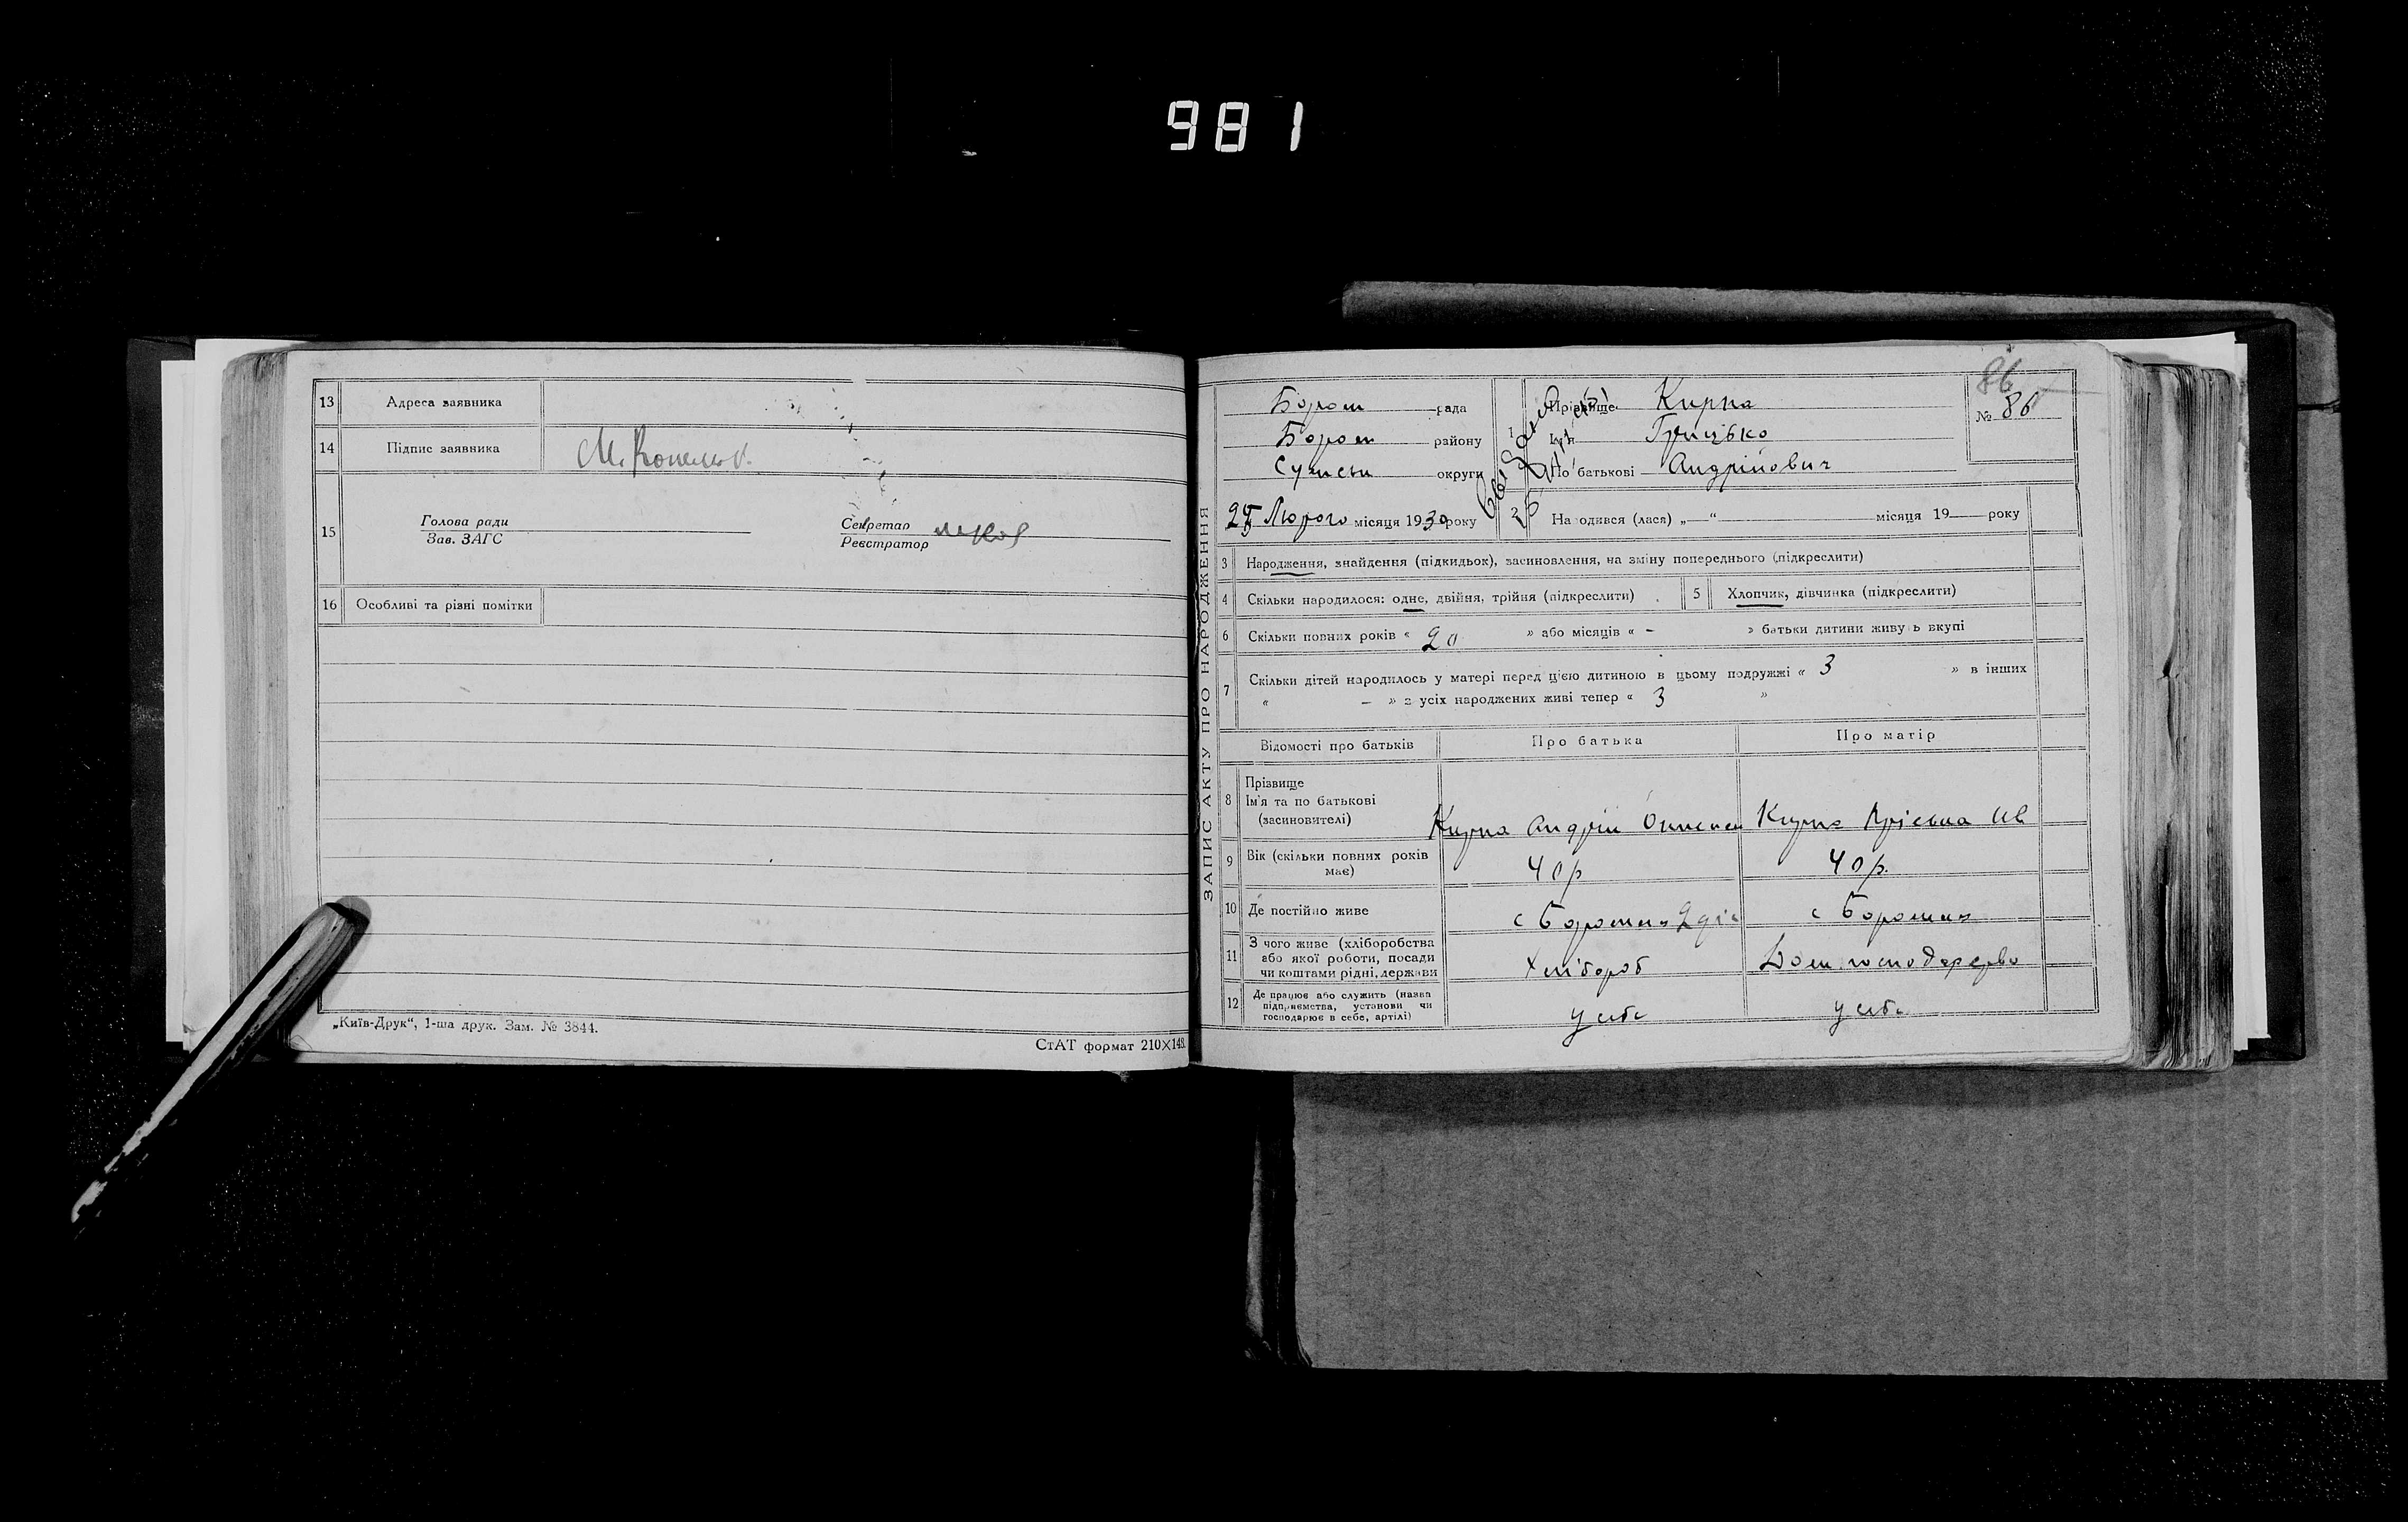 981
13 Адреса заявника
14 Підпис заявника
15 Голова ради
Зав. ЗАГС
Секретар
Реєстратор
16 Особливі та різні помітки
„Київ-Друк“, 1-ша друк. Зам. № 3844.
СтАТ формат 210×148.
ЗАПИС АКТУ ПРО НАРОДЖЕННЯ
86
№ 86
Бором рада
Бором району
Сумськ округи
Лютого місяця 1930 року
1 Прізвище Кирпа
Ім'я Грицько
По батькові Андрійович
2 Народився (лася) „—“ місяця 19— року
3 Народження, знайдення (підкидьок), засиновлення, на зміну попереднього (підкреслити)
4 Скільки народилося: одне, двійня, трійня (підкреслити)
5 Хлопчик, дівчинка (підкреслити)
6 Скільки повних років « 20 » або місяців « – » батьки дитини живуть вкупі
7 Скільки дітей народилось у матері перед цією дитиною в цьому подружжі « 3 » в інших
« – » з усіх народжених живі тепер « 3 »
Відомості про батьків Про батька Про матір
8 Прізвище
Ім'я та по батькові
(засиновителі)
Кирпа Андрій
Кирпа Ів
9 Вік (скільки повних років
має)
40 р
40 р.
10 Де постійно живе
с Боромля
с Боромля
11 З чого живе (хліборобства
або якої роботи, посади
чи коштами рідні, держави
Хлібороб
Дом. господарство
12 Де працює або служить (назва
підприємства, установи чи
господарює в себе, артілі)
у себе
у себе